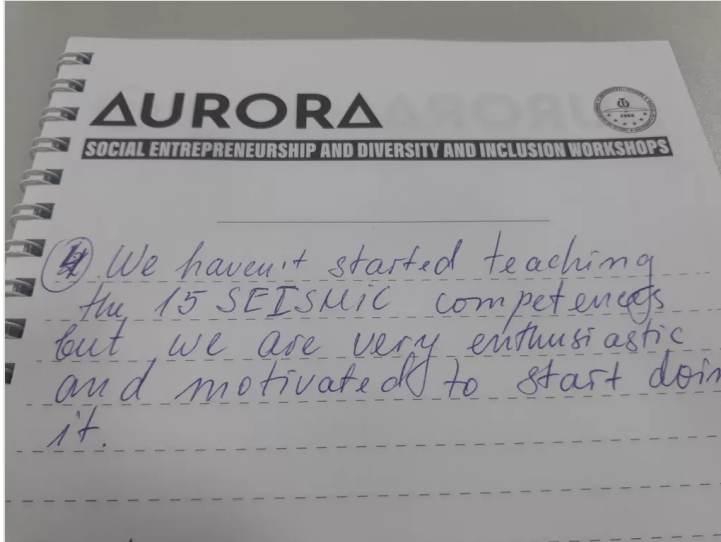 AURORA
SOCIAL ENTREPRENEURSHIP AND DIVERSITY AND INCLUSION WORKSHOPS
4 We haven't started teaching
the 15 SEISMIC competences
but we are very enthusiastic
and motivated to start doin
it.